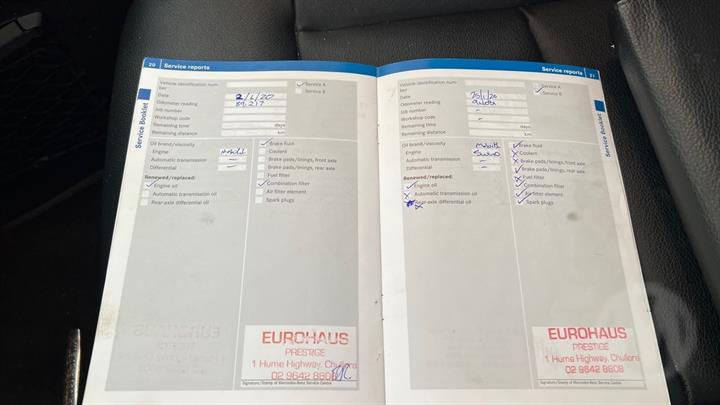 20 Service reports
Vehicle identification num-
ber
Service A
Service B
Date 2/6/20
Odometer reading 89,217
Job number
Workshop code
Remaining time days
Remaining distance km
Service Booklet
Oil brand/viscosity
Engine
Automatic transmission –
Differential –
Renewed/replaced:
Engine oil
Automatic transmission oil
Rear-axle differential oil
Brake fluid
Coolant
Brake pads/linings, front axle
Brake pads/linings, rear axle
Fuel filter
Combination filter
Air filter element
Spark plugs
EUROHAUS
PRESTIGE
1 Hume Highway, Chullora
02 9642 8608
Signature/Stamp of Mercedes-Benz Service Centre
Service reports 21
Vehicle identification num-
ber
Service A
Service B
Date
Odometer reading
Job number –
Workshop code –
Remaining time days
Remaining distance km
Service Booklet
Oil brand/viscosity
Engine
Automatic transmission
Differential –
Renewed/replaced:
Engine oil
Automatic transmission oil
Rear-axle differential oil
Brake fluid
Coolant
Brake pads/linings, front axle
Brake pads/linings, rear axle
Fuel filter
Combination filter
Air filter element
Spark plugs
EUROHAUS
PRESTIGE
1 Hume Highway, Chullora
02 9642 8608
Signature/Stamp of Mercedes-Benz Service Centre